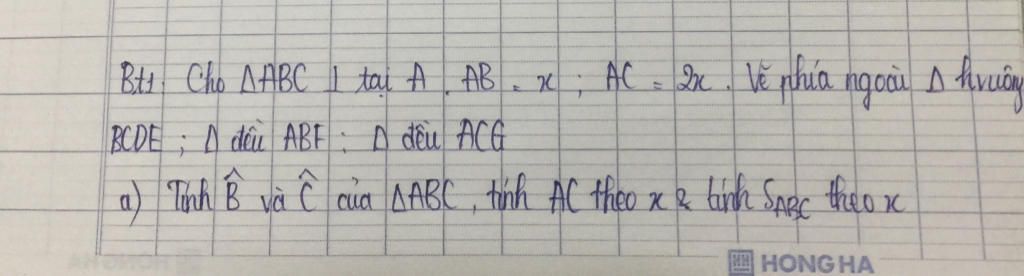 Bt1. Cho ΔABC ⊥ tại A. AB = x ; AC = 2x. Vẽ phía ngoài Δ hvuông
BCDE ; Δ đều ABF ; Δ đều ACG
a) Tính B̂ và Ĉ của ΔABC, tính AC theo x & tính SABC theo x
HONG HA